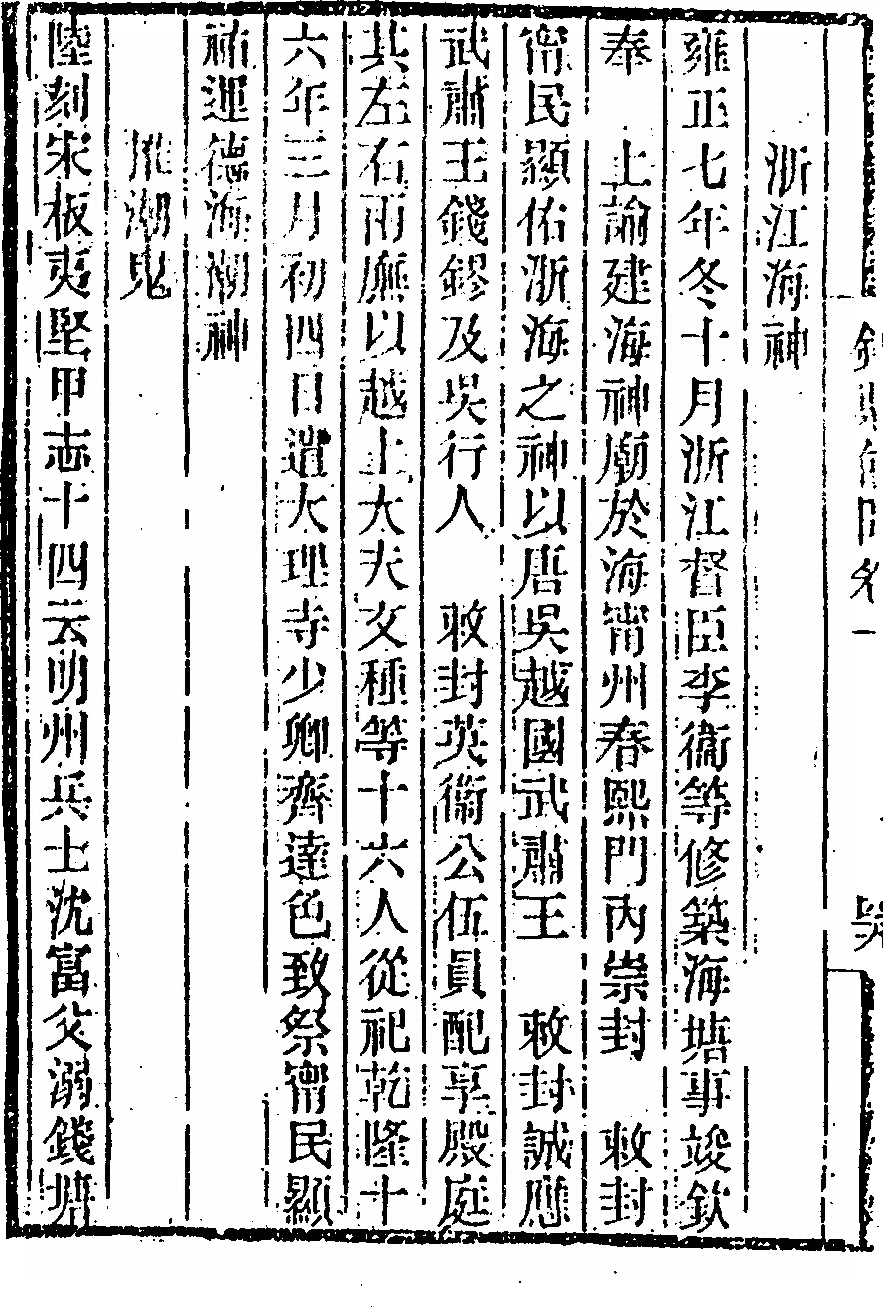 浙江海神
雍正七年冬十月浙江督臣李衞等修築海塘事竣欽
奉　上諭建海神廟於海甯州春熙門內崇封　敕封
甯民顯佑浙海之神以唐吳越國武肅王　敕封誠應
武肅王錢鏐及吳行人　敕封英衞公伍員配享殿庭
其左右兩廡以越上大夫文種等十六人從祀乾隆十
六年三月初四日遣大理寺少卿齊達色致祭甯民顯
祐運德海潮神
推潮鬼
陸刻宋板夷堅甲志十四云明州兵士沈富父溺錢塘